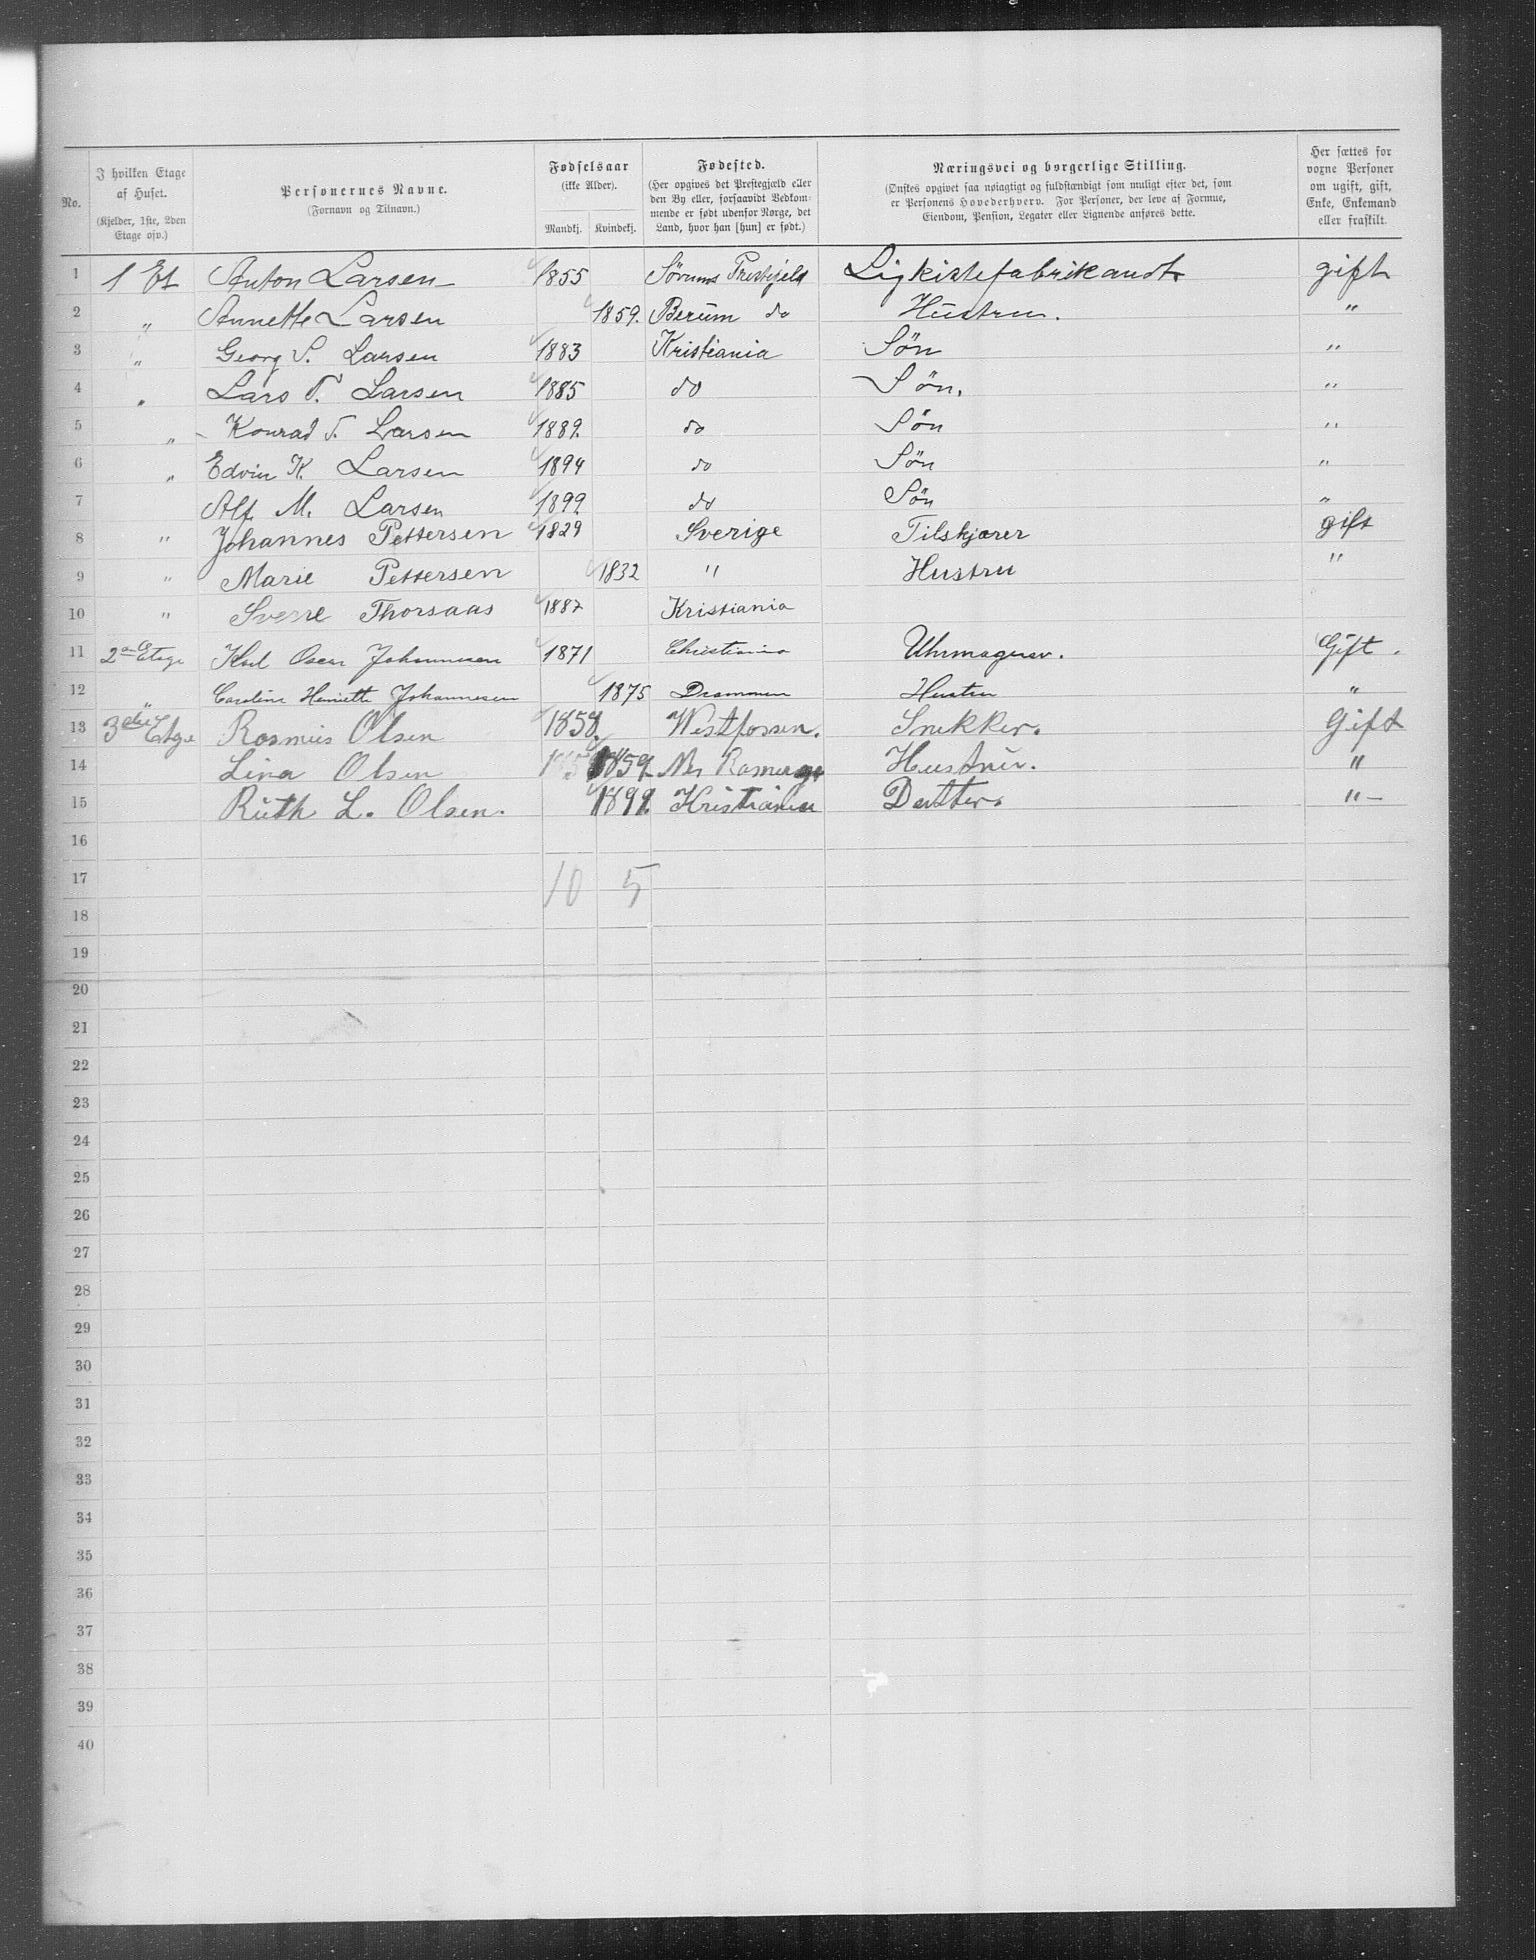 No.
I hvilken Etage af Huset.
(Kjelder, 1ste, 2den Etage osv.)
Personernes Navne.
(Fornavn og Tilnavn.)
Fødselsaar
(ikke Alder).
Mandkj. Kvindekj.
Fødested.
(Her opgives det Prestegjæld eller den By eller, forsaavidt Vedkommende er født udenfor Norge, det Land, hvor han [hun] er født.)
Næringsvei og borgerlige Stilling.
(Ønskes opgivet saa nøiagtigt og fuldstændigt som muligt efter det, som er Personens Hovederhverv. For Personer, der leve af Formue, Eiendom, Pension, Legater eller Lignende anføres dette.
Her sættes for voxne Personer om ugift, gift, Enke, Enkemand eller fraskilt.
1 1 Et Anton Larsen 1855 Sørums Prestegjeld Ligkistefabrikandt gift
2 " Annette Larsen 1859. Berum do Hustru. "
3 " Georg S. Larsen 1883 Kristiania Søn "
4 " Lars T. Larsen 1885 do Søn. "
5 " Konrad T. Larsen 1889 do Søn "
6 " Edvin K. Larsen 1894 do Søn "
7 Alf M. Larsen 1899 do Søn "
8 " Johannes Pettersen 1829 Sverige Tilskjærer gift
9 " Marie Pettersen 1832 " Hustru "
10 " Sverre Thorsaas 1887 Kristiania
11 2en Etage Karl Oscar Johannesen 1871 Christiania Uhrmager. Gift.
12 " Caroline Henriette Johannesen 1875 Drammen Hustru "
13 3die Etage Rasmus Olsen 1858. Westfossen. Snekker. Gift
14 Lina Olsen 1859. Hustru. "
15 Ruth L. Olsen. 1899. Kristiania Datter. " –
16
17 10 5
18
19
20
21
22
23
24
25
26
27
28
29
30
31
32
33
34
35
36
37
38
39
40